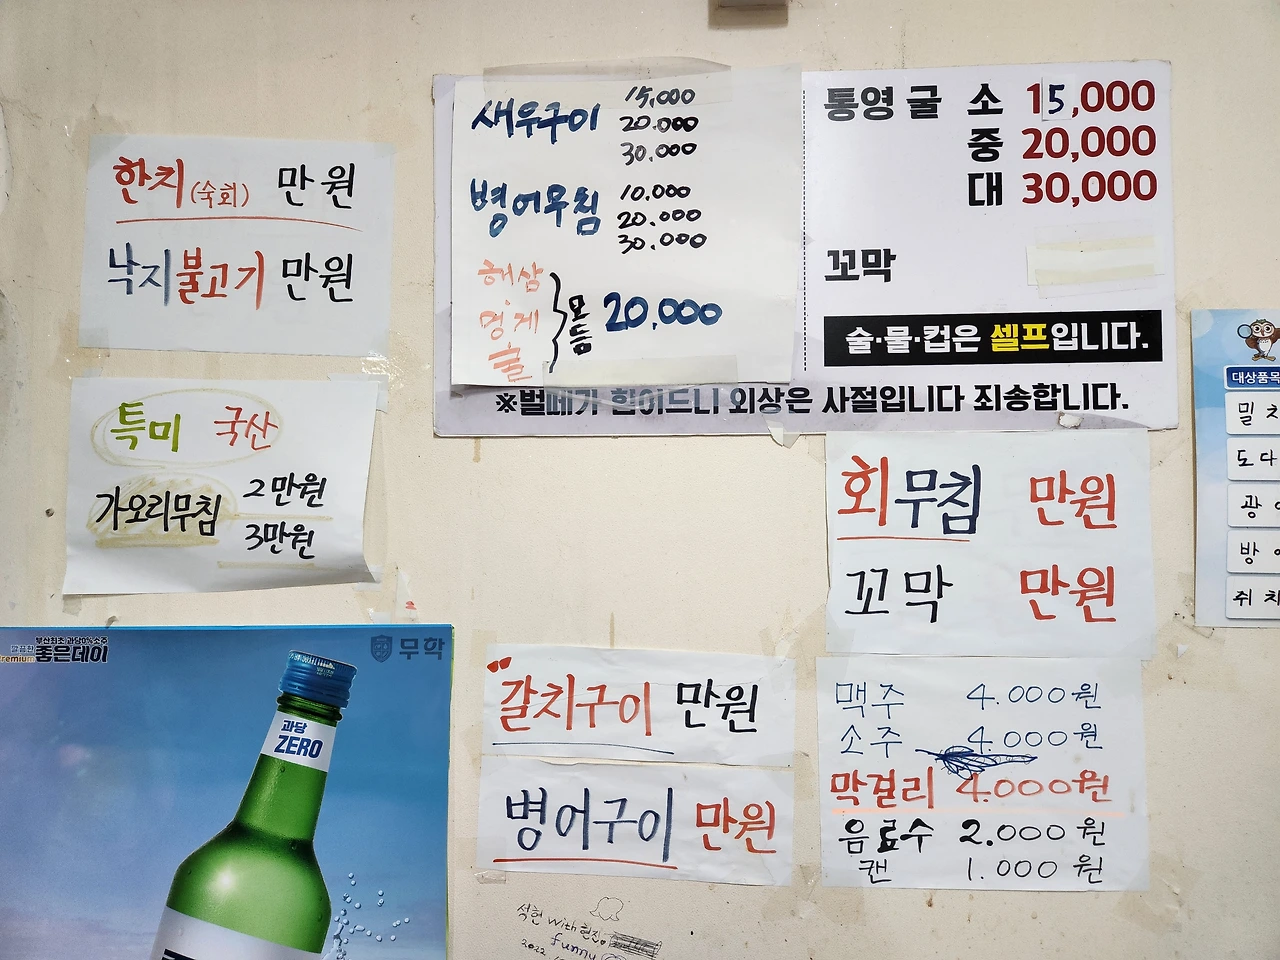 한치(숙회) 만원
낙지불고기 만원
특미 국산
가오리무침 2만원
3만원
새우구이 15,000
20.000
30.000
병어무침 10.000
20.000
30.000
해삼
멍게
굴
모듬 20,000
통영 굴 소 15,000
중 20,000
대 30,000
꼬막
술·물·컵은 셀프입니다.
※벌떼가 힘이드니 외상은 사절입니다 죄송합니다.
회무침 만원
꼬막 만원
"갈치구이 만원
병어구이 만원
맥주 4.000원
소주 4.000원
막걸리 4.000원
음료수 2.000원
캔 1.000원
대상품목
밀
도다
광
방
쥐치
부산최초 과당0%소주
좋은데이
무학
과당
ZERO
석현 with 현진
2022 funny